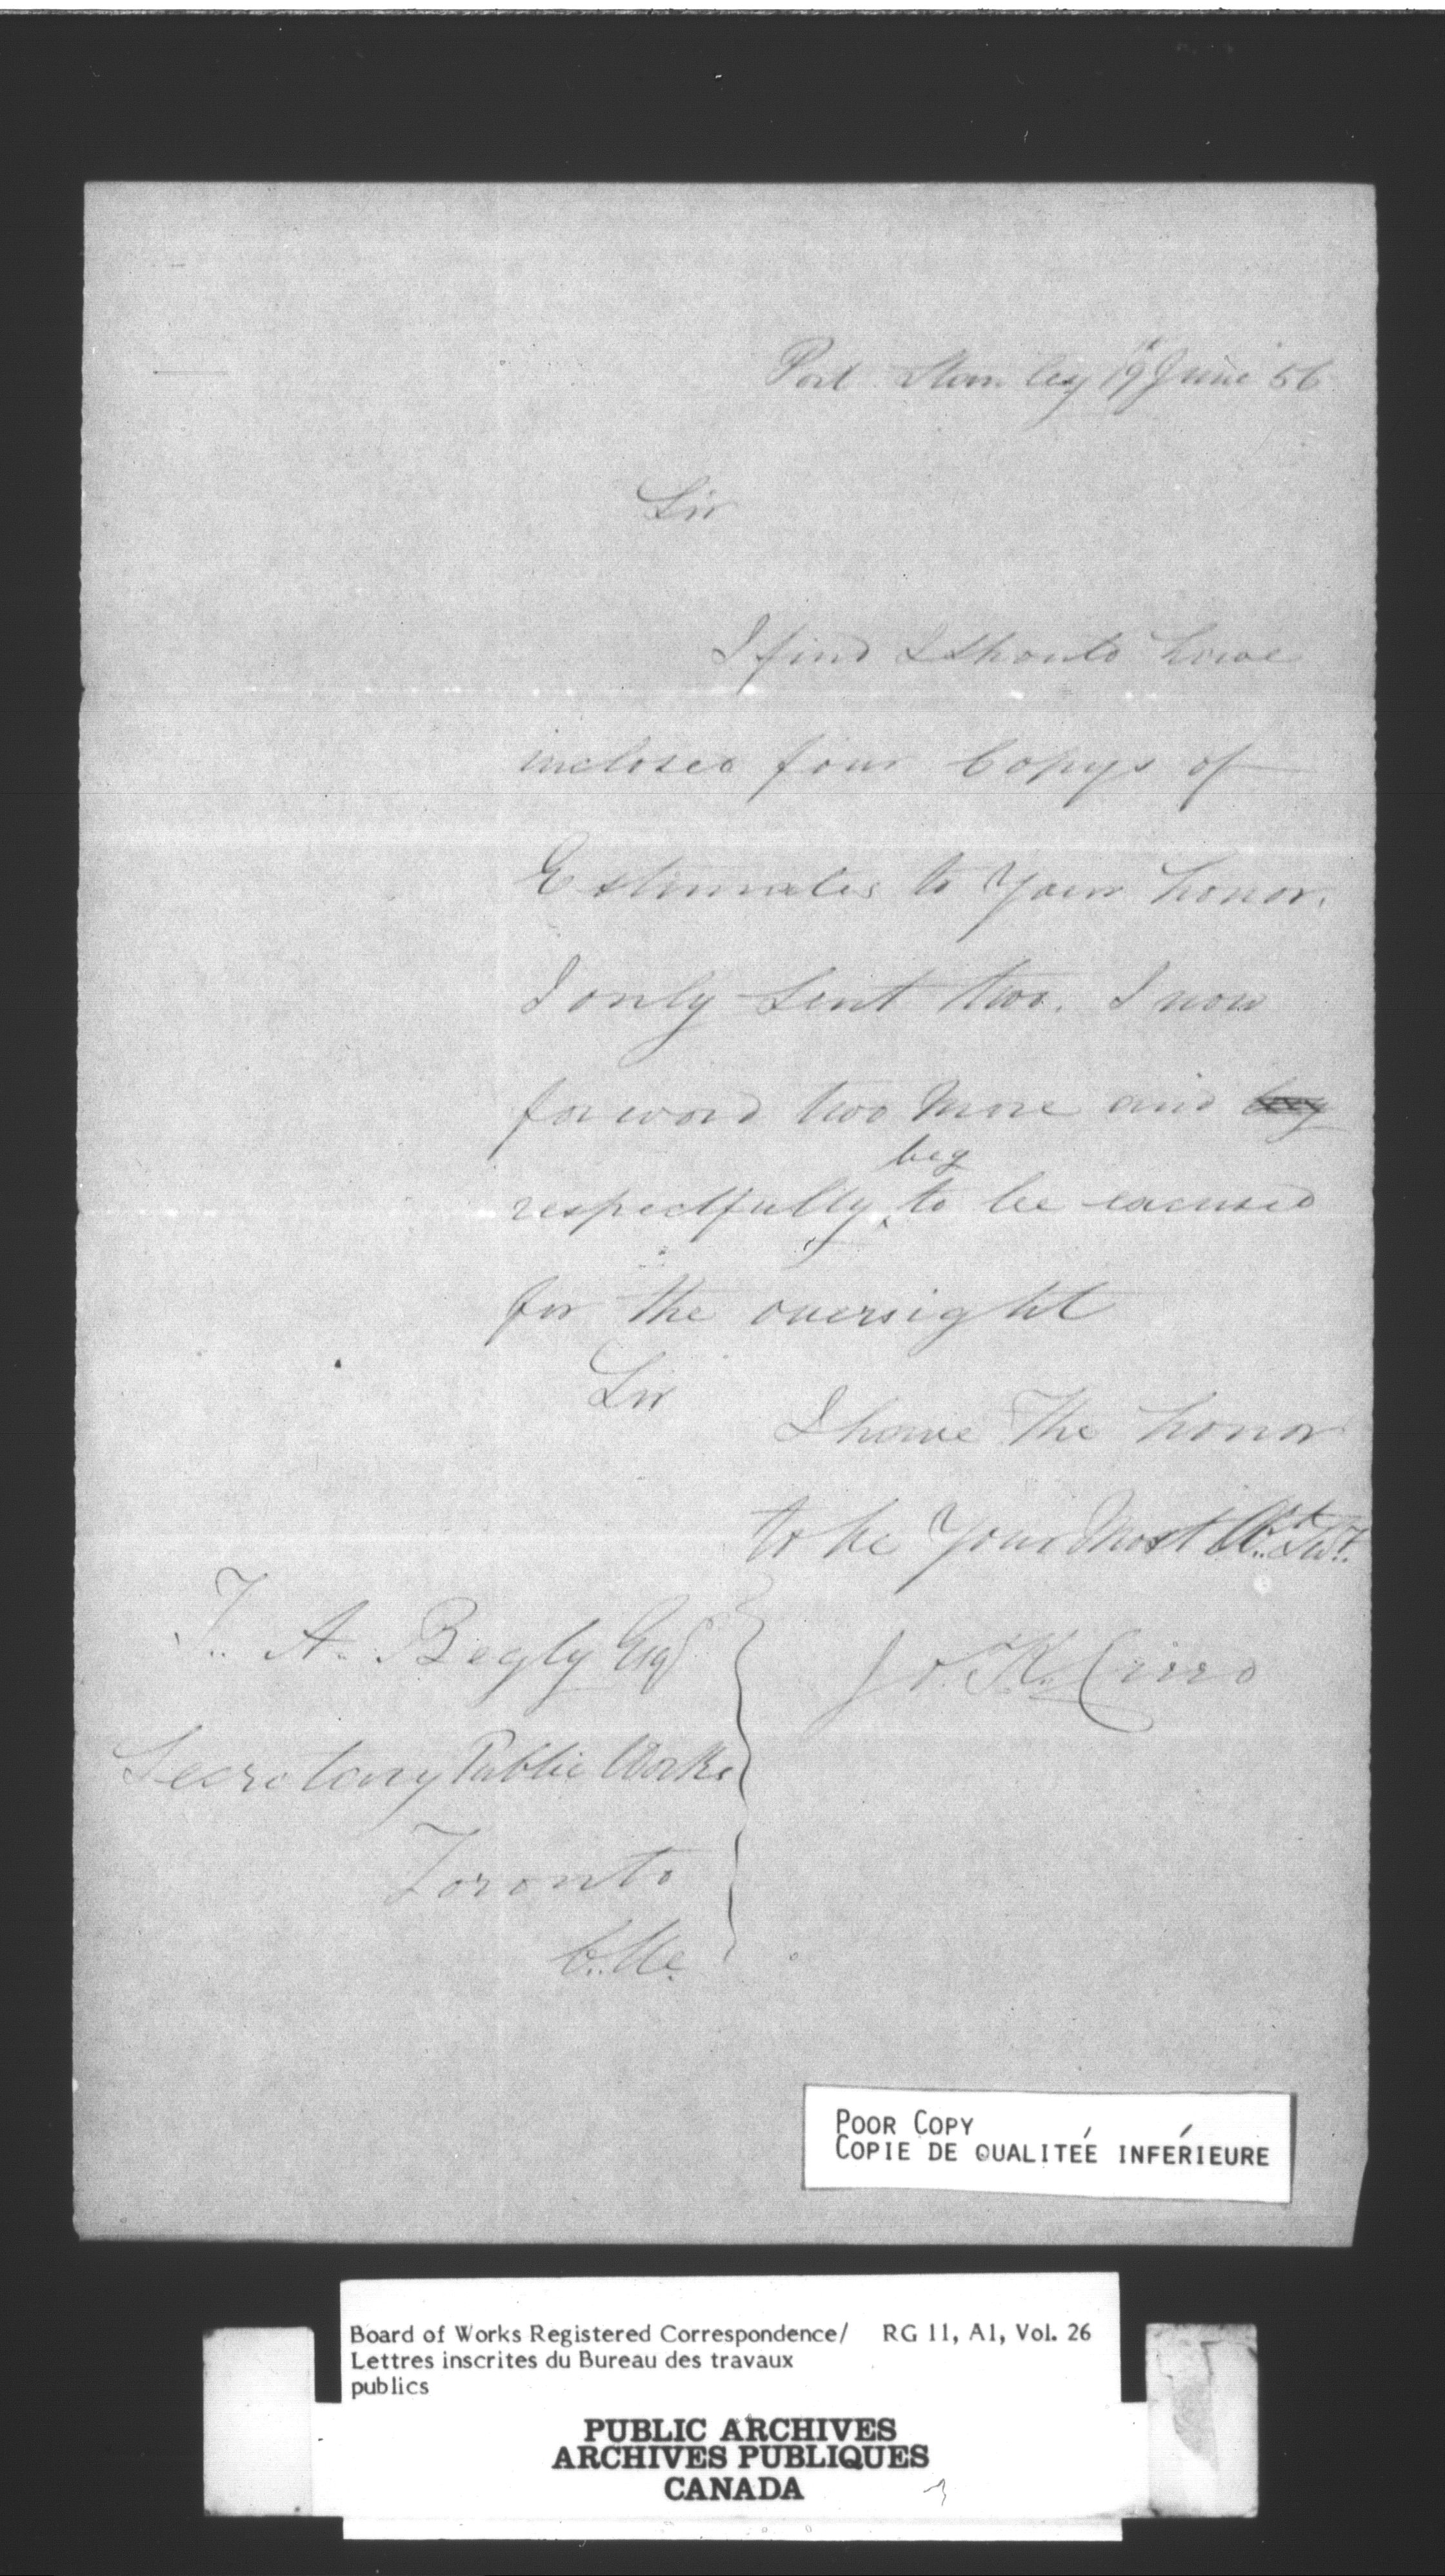 Port Stanley 19th June 56
Sir
I find I should have
inclosed four Copys of
Estimates to Your honor.
I only Sent two. I now
forword two More and beg
beg
respectfully to be excused
for the oversight
Sir
I have The honor
to be Your Most Ob.t
T. A. Begly Esqr
Secretary Public Works
Toronto
C.. We.
POOR COPY
COPIE DE QUALITÉE INFÉRIEURE
Board of Works Registered Correspondence/ RG 11, A1, Vol. 26
Lettres inscrites du Bureau des travaux
publics
PUBLIC ARCHIVES
ARCHIVES PUBLIQUES
CANADA